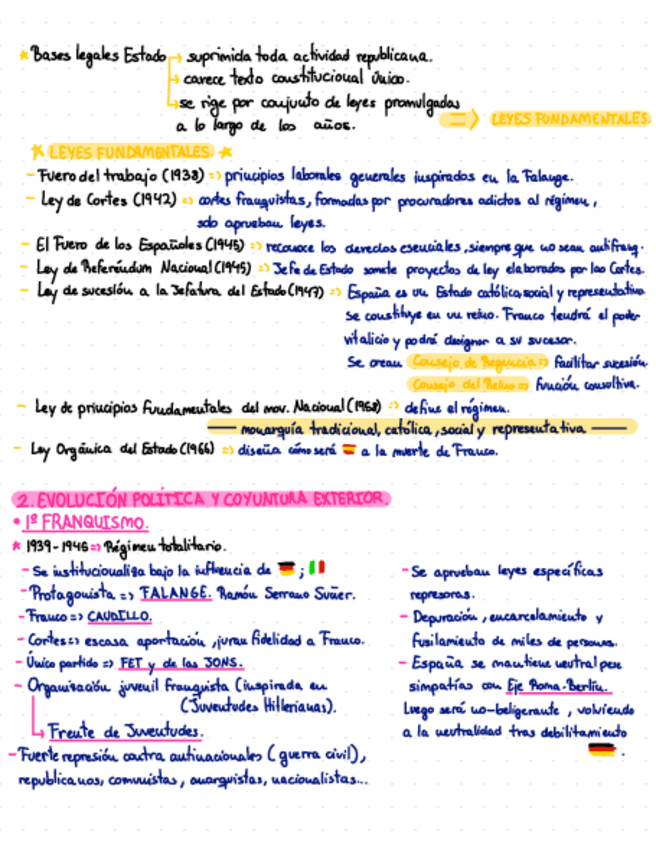 * Bases legales Estado → suprimida toda actividad republicana.
→ carece texto constitucional único.
→ se rige por conjunto de leyes promulgadas
a lo largo de los años.
=> LEYES FUNDAMENTALES.
* LEYES FUNDAMENTALES *
- Fuero del trabajo (1938) => principios laborales generales inspirados en la Falange.
- Ley de Cortes (1942) => cortes franquistas, formadas por procuradores adictos al régimen,
solo aprueban leyes.
- El Fuero de los Españoles (1945) => reconoce los derechos esenciales, siempre que no sean antifranq.
- Ley de Referéndum Nacional (1945) => Jefe de Estado somete proyectos de ley elaborados por las Cortes.
- Ley de sucesión a la Jefatura del Estado (1947) => España es un Estado católico, social y representativo
se constituye en un reino. Franco tendrá el poder
vitalicio y podrá designar a su sucesor.
Se crean Consejo de Regencia => facilitar sucesión.
Consejo del Reino => función consultiva.
- Ley de principios Fundamentales del mov. Nacional (1958) => define el régimen.
— monarquía tradicional, católica, social y representativa —
- Ley Orgánica del Estado (1966) => diseña cómo será 🇪🇸 a la muerte de Franco.
2. EVOLUCIÓN POLÍTICA Y COYUNTURA EXTERIOR.
• 1º FRANQUISMO.
* 1939-1945 => Régimen totalitario.
- Se institucionaliza bajo la influencia de 🇩🇪 ; 🇮🇹
- Protagonista => FALANGE. Ramón Serrano Suñer.
- Franco => CAUDILLO.
- Cortes => escasa aportación, juran fidelidad a Franco.
- Único partido => FET y de las JONS.
- Organización juvenil franquista (inspirada en
(Juventudes Hitlerianas).
→ Frente de Juventudes.
- Fuerte represión contra antinacionales (guerra civil),
republicanos, comunistas, anarquistas, nacionalistas...
- Se aprueban leyes específicas
represoras.
- Depuración, encarcelamiento y
fusilamiento de miles de personas.
- España se mantiene neutral pese
simpatías con Eje Roma-Berlín.
Luego será no-beligerante, volviendo
a la neutralidad tras debilitamiento
🇩🇪.